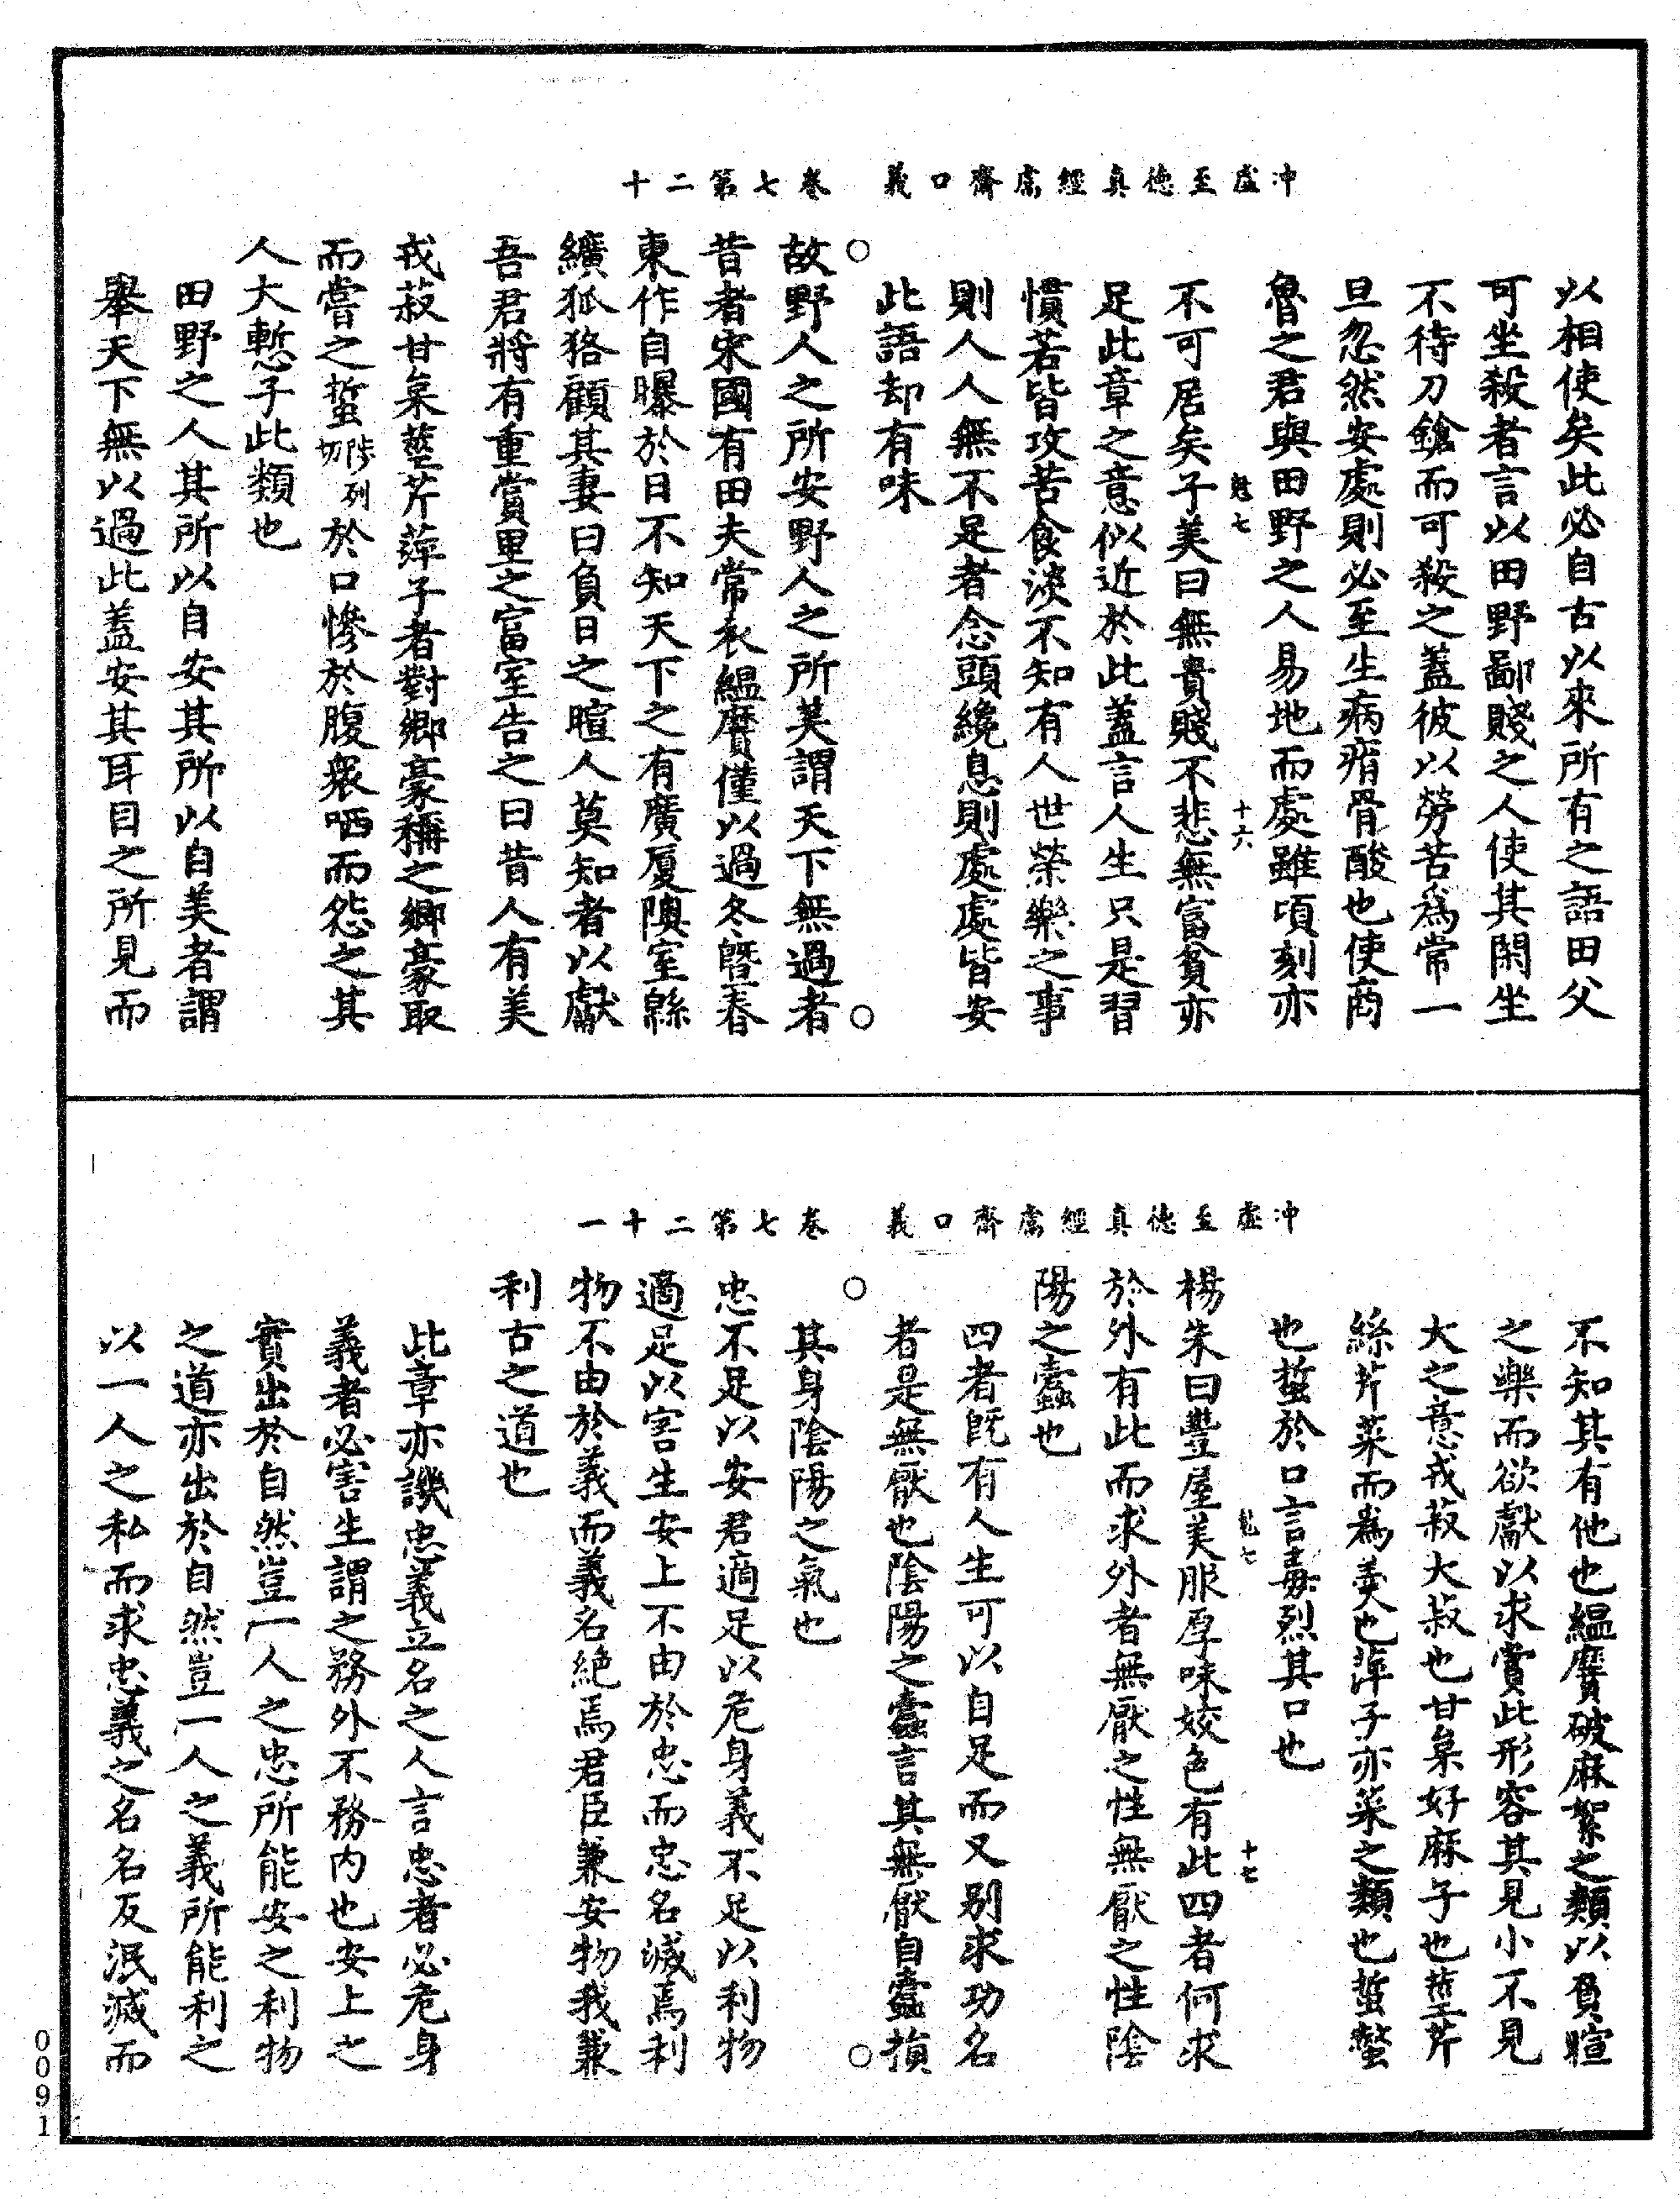 冲虛至德真經鬳齋口義　卷七第二十
以相使矣此必自古以來所有之語田父
可坐殺者言以田野鄙賤之人使其閑坐
不待刀鎗而可殺之蓋彼以勞苦爲常一
旦忽然安處則必至生病痟骨酸也使商
魯之君與田野之人易地而處雖頃刻亦
七
十六
不可居矣子美曰無貴賤不悲無富貧亦
足此章之意似近於此蓋言人生只是習
慣若皆攻苦食淡不知有人世榮樂之事
則人人無不足者念頭纔息則處處皆安
此語却有味
故野人之所安野人之所美謂天下無過者
昔者宋國有田夫常衣縕黂僅以過冬曁春
東作自曝於日不知天下之有廣厦隩室緜
纊狐狢顧其妻曰負日之暄人莫知者以獻
吾君將有重賞里之富室告之曰昔人有美
戎菽甘枲莖芹萍子者對鄉豪稱之鄉豪取
而嘗之蜇陟列切於口慘於腹衆哂而怨之其
人大慙子此類也
田野之人其所以自安其所以自美者謂
舉天下無以過此蓋安其耳目之所見而
冲虛至德真經鬳齋口義　卷七第二十一
不知其有他也縕黂破麻絮之類以負暄
之樂而欲獻以求賞此形容其見小不見
大之意戎菽大菽也甘枲好麻子也莖芹
絲芹菜而爲羹也萍子亦菜之類也蜇螫
也蜇於口言毒烈其口也
七
十七
楊朱曰豐屋美服厚味姣色有此四者何求
於外有此而求外者無厭之性無厭之性陰
陽之蠹也
四者旣有人生可以自足而又別求功名
者是無厭也陰陽之蠹言其無厭自蠹損
其身陰陽之氣也
忠不足以安君適足以危身義不足以利物
適足以害生安上不由於忠而忠名滅焉利
物不由於義而義名絕焉君臣兼安物我兼
利古之道也
此章亦譏忠義立名之人言忠者必危身
義者必害生謂之務外不務内也安上之
實出於自然豈一人之忠所能安之利物
之道亦出於自然豈一人之義所能利之
以一人之私而求忠義之名名反泯滅而
0091